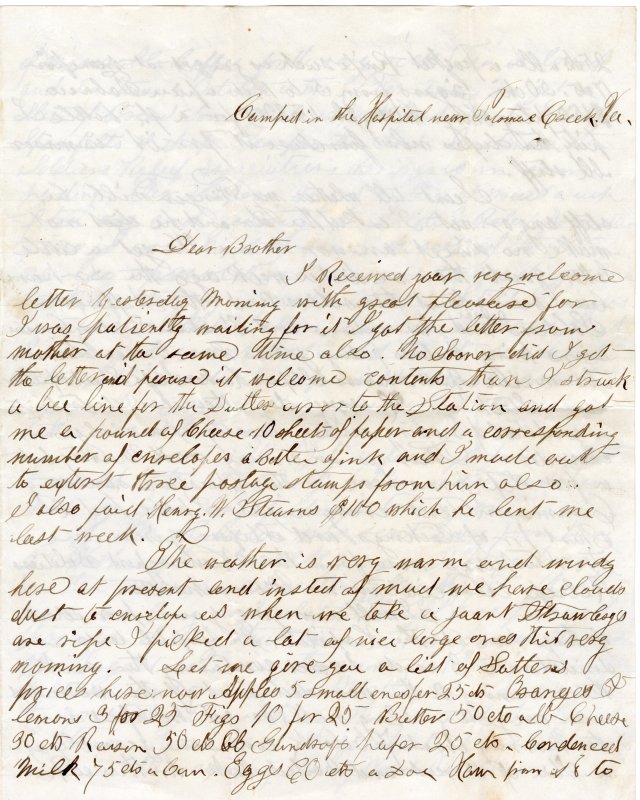 Camped in the Hospital near Potomac Creek. Va.
Dear Brother
I Received your very welcome
letter Yesterday Morning with great pleasure for
I was patiently waiting for it I got the letter from
mother at the same time also. No Sooner did I get
the letter and peruse it welcome contents than I struck
a bee line for the Sutler over to the Station and got
me a pound of Cheese 10 sheets of paper and a corresponding
number of envelopes a bottle of ink and I made out
to extort three postage stamps from him also.
I also paid Henry. W. Stearns $1.00 which he lent me
last week.
The weather is very warm and windy
here at present and insted of mud we have clouds
dust to envelope us when we take a jaunt
are ripe I picked a lot of nice large ones this very
morning. Let me give you a list of Sutlers
prices here now Apples 5 small ones for 25 cts Oranges &
lemons 3 for 25 Figs 10 for 25 Butter 50 cts a lb Cheese
30 cts Raison 50 cts lb Gumdrops paper 25 cts. Condenced
Milk 75 cts a Can. Eggs 60 cts a Doz Ham from 8 to